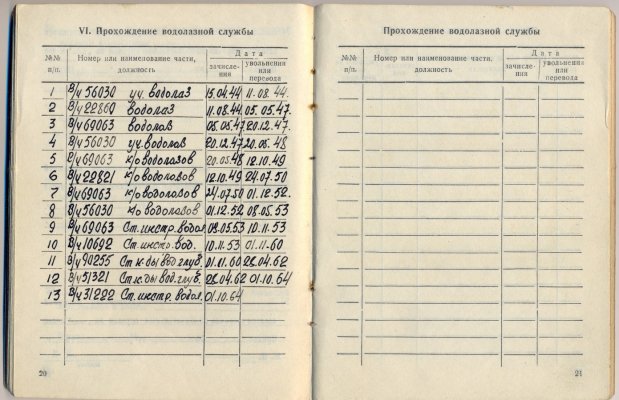 VI. Прохождение водолазной службы
№№ п/п. Номер или наименование части, должность Дата зачисления увольнения или перевода
1 В/ч 56030 уч. водолаз 15.04.44 11.08.44.
2 В/ч 22869 водолаз 11.08.44 05.05.47.
3 В/ч 69063 водолаз 05.05.47 20.12.47.
4 В/ч 56030 уч. водолаз 20.12.47 20.05.48
5 В/ч 69063 к/о водолазов 20.05.48 12.10.49
6 В/ч 22821 к/о водолазов 12.10.49 24.07.50
7 В/ч 69063 к/о водолазов 24.07.50 01.12.52.
8 В/ч 56030 к/о водолазов 01.12.52 08.05.53
9 В/ч 69063 Ст. инстр. водол. 08.05.53 10.11.53
10 В/ч 10692 Ст. инстр. вод. 10.11.53 01.11.60
11 В/ч 90255 Ст к-ды вод. глуб. 01.11.60 28.04.62
12 В/ч 51321 Ст. к-ды вод. глуб. 28.04.62 01.10.64
13 В/ч 31222 Ст. инстр. водол. 01.10.64
20
Прохождение водолазной службы
№№ п/п. Номер или наименование части, должность Дата зачисления увольнения или перевода
21